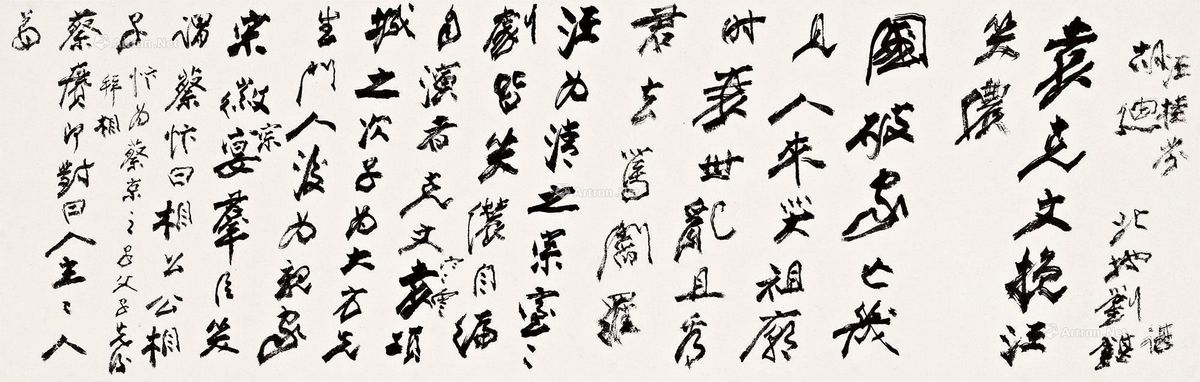 汪桂芬
胡迪 北地劉諶
袁克文挽汪
笑儂
國破家亡幾
見人來哭祖廟
時衰世亂且为
君去罵閻羅
汪为清之宗室ミ
劇皆笑儂自編
自演者克文寒雲袁項
城之次子为大方先
生門人後为親家
宋徽宗宴羣臣笑
謂蔡忭曰相公公相
子忭为蔡京之子父子先後
拜相
蔡賡即對曰人主ミ人
翁
Artron.Net